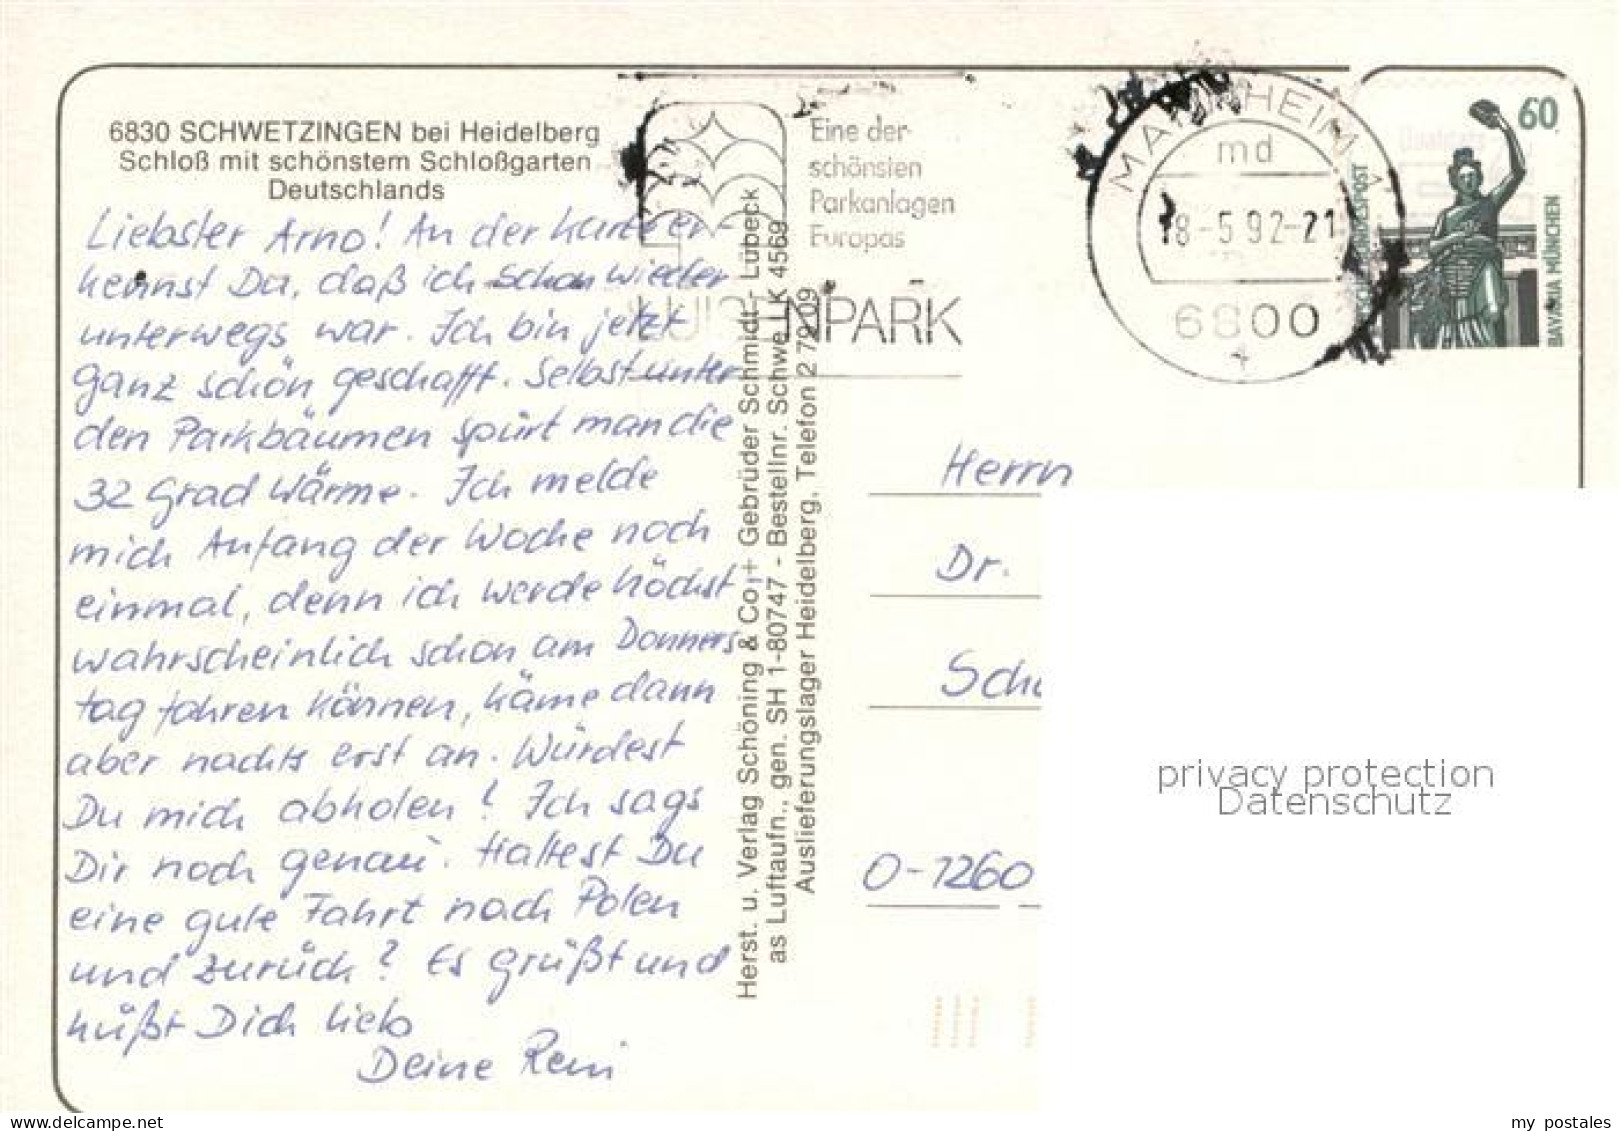 6830 SCHWETZINGEN bei Heidelberg
Schloß mit schönstem Schloßgarten
Deutschlands
Liebster Arno! An der Karte er-
kennst Du, daß ich schon wieder
unterwegs war. Ich bin jetzt
ganz schön geschafft. Selbst unter
den Parkbäumen spürt man die
32 Grad Wärme. Ich melde
mich Anfang der Woche noch
einmal, denn ich werde höchst
wahrscheinlich schon am Donners
tag fahren können, käme dann
aber nachts erst an. Würdest
Du mich abholen? Ich sags
Dir noch genau. Hattest Du
eine gute Fahrt nach Polen
und zurück? Es grüßt und
küßt Dich lieb
Deine Reni
Herst. u. Verlag Schöning & Co + Gebrüder Schmidt - Lübeck
as Luftaufn., gen. SH 1-80747 - Bestellnr. Schwe LK 4569
Auslieferungslager Heidelberg, Telefon 2 79 09
Eine der
schönsten
Parkanlagen
Europas
LUISENPARK
MANNHEIM 1
md
18-5.92-21
6800
60
DEUTSCHE BUNDESPOST
BAVARIA MÜNCHEN
Herrn
Dr.
O-1260
privacy protection
Datenschutz
my postales